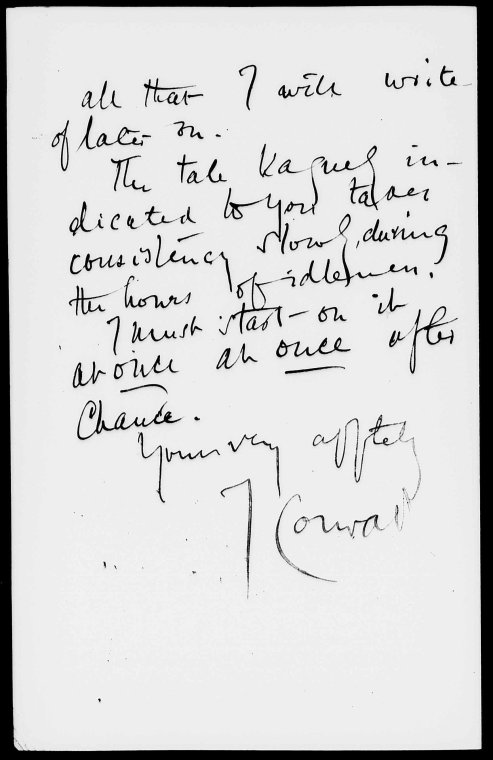 all that I will write
of later on.
The tale vaguely in-
dicated to you takes
consistency slowly, during
the hours of idleness.
I must start on it
at once at once after
Chance.
Yours very affctely
J Conrad